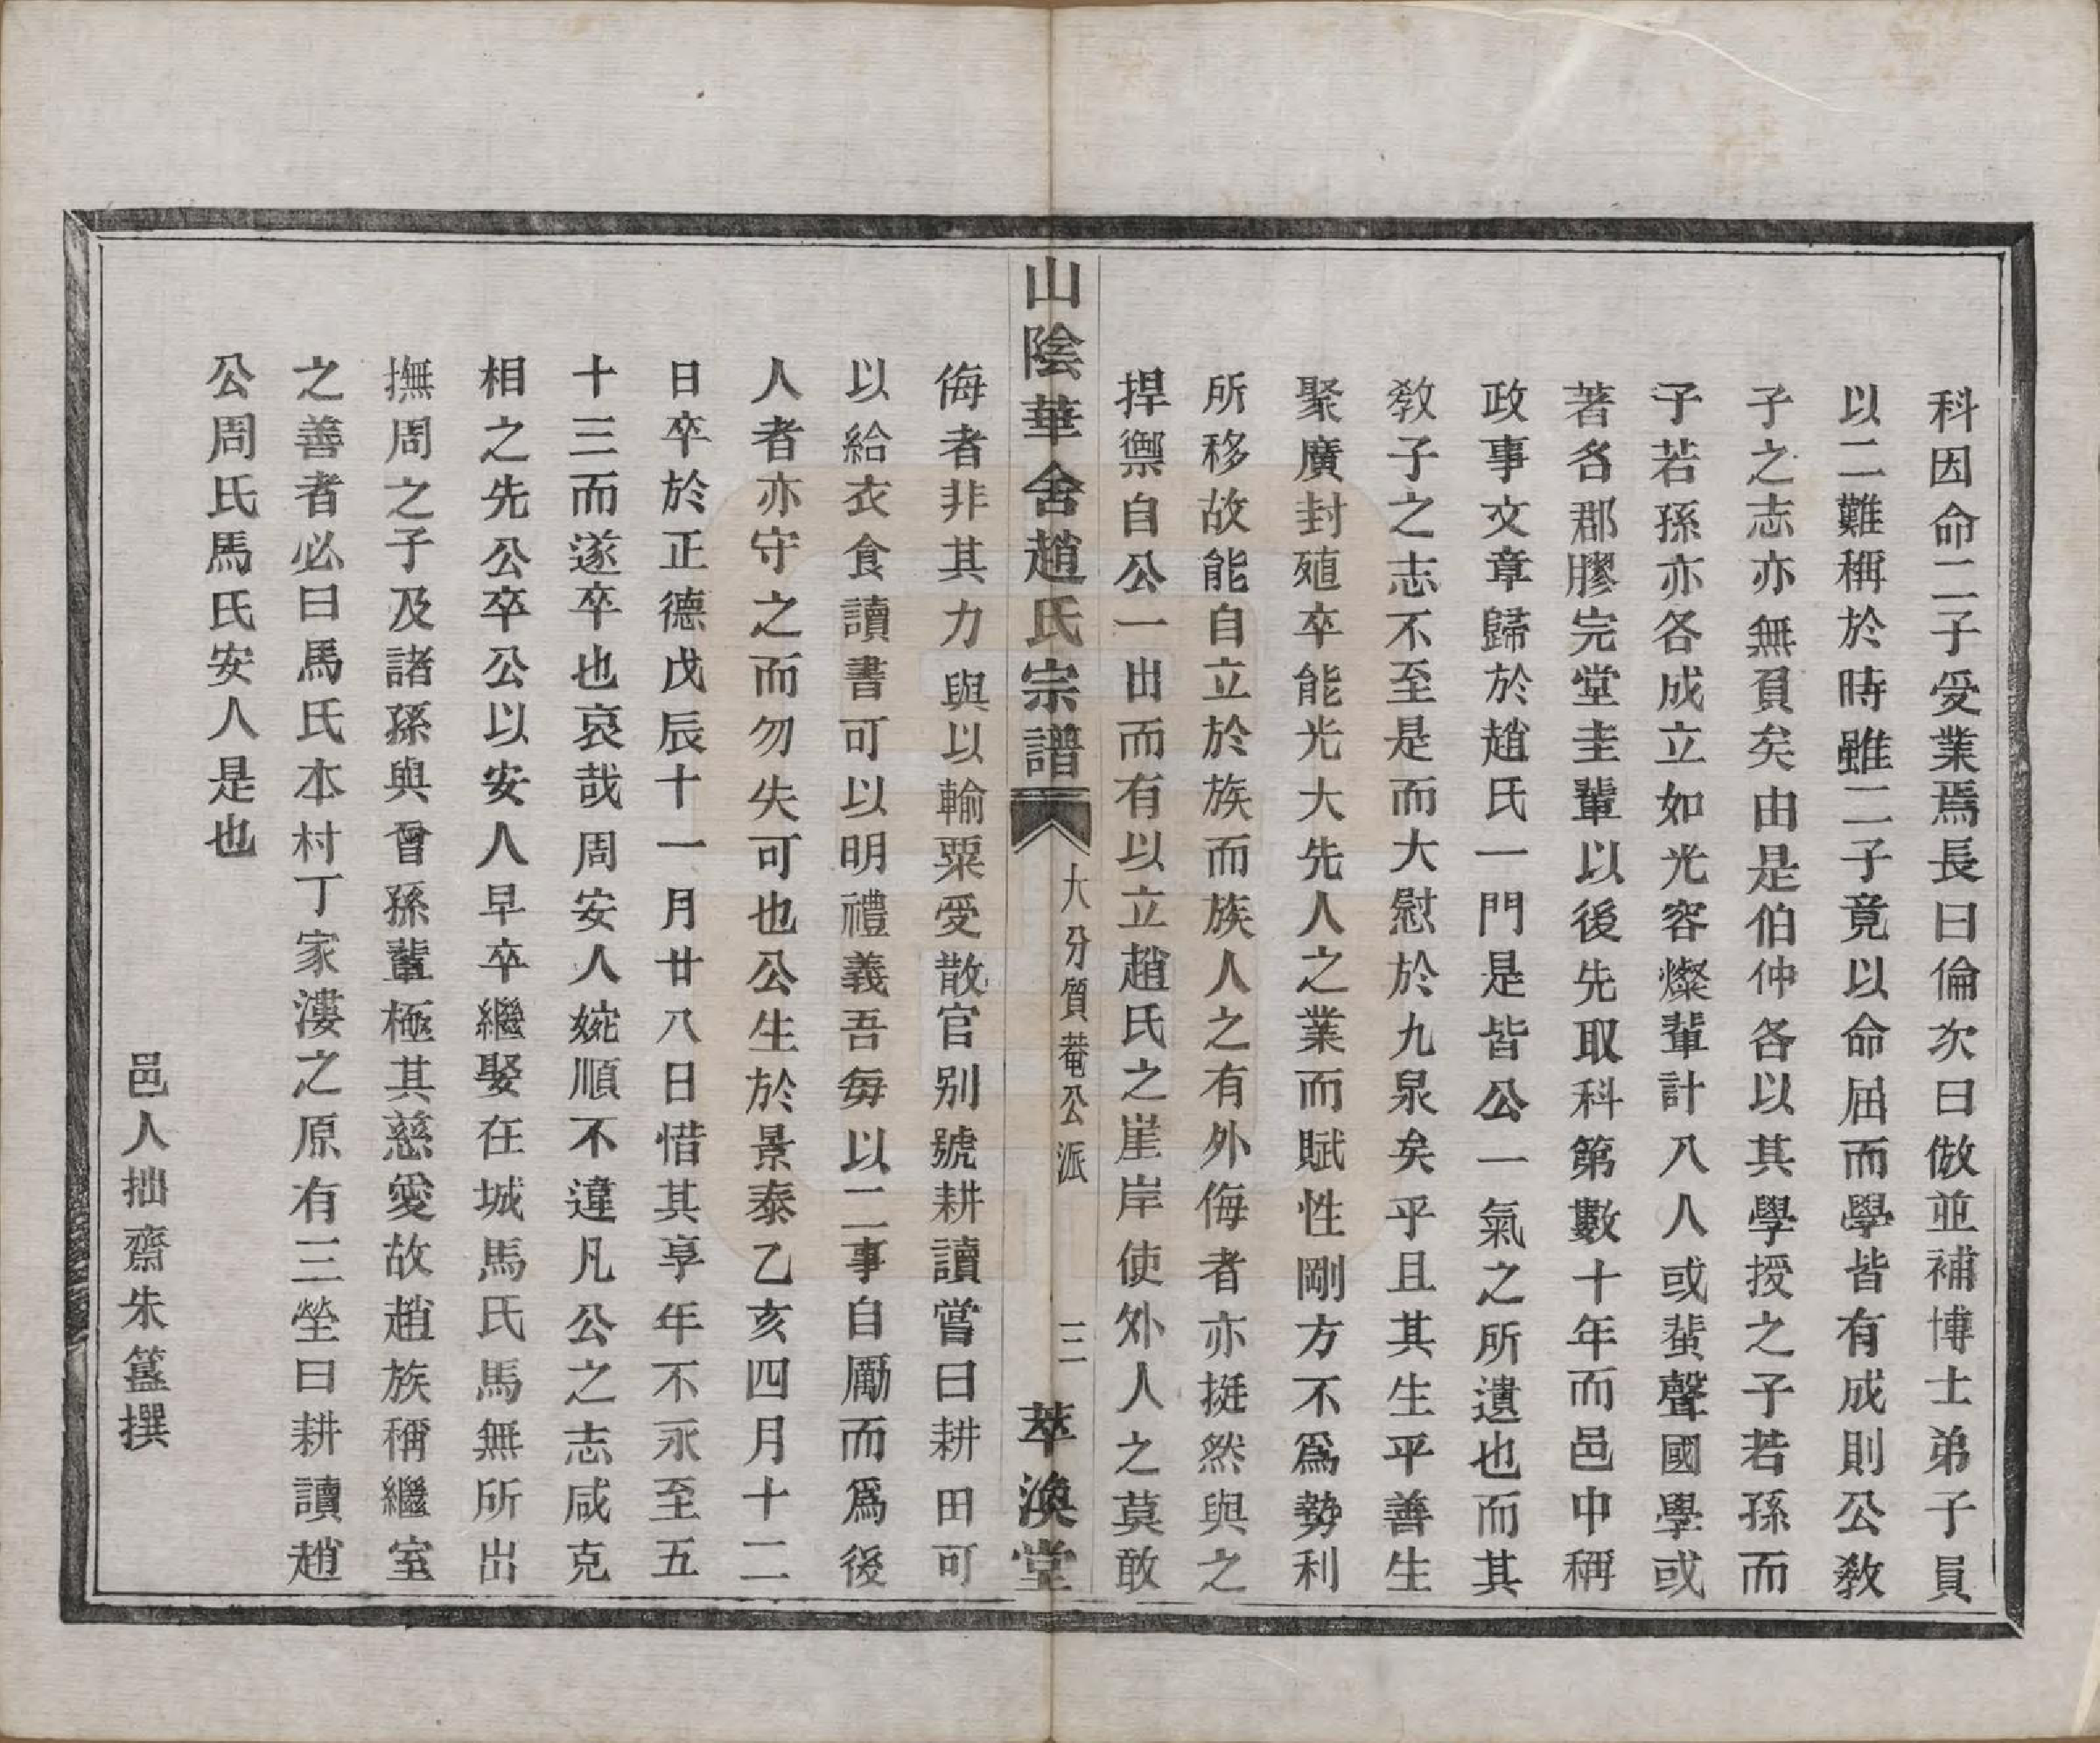 科因命二子受業焉長曰倫次曰倣並補博士弟子員
以二難稱於時雖二子竟以命屈而學皆有成則公教
子之志亦無負矣由是伯仲各以其學授之子若孫而
子若孫亦各成立如光容燦輩計八人或蜚聲國學或
著名郡膠完堂圭輩以後先取科第數十年而邑中稱
政事文章歸於趙氏一門是皆公一氣之所遺也而其
教子之志不至是而大慰於九泉矣乎且其生平善生
聚廣封殖卒能光大先人之業而賦性剛方不爲勢利
所移故能自立於族而族人之有外侮者亦挺然與之
捍禦自公一出而有以立趙氏之崖岸使外人之莫敢
山陰華舍趙氏宗譜 大分質菴公派 三 萃渙堂
侮者非其力與以輸粟受散官别號耕讀嘗曰耕田可
以給衣食讀書可以明禮義吾每以二事自勵而爲後
人者亦守之而勿失可也公生於景泰乙亥四月十二
日卒於正德戊辰十一月廿八日惜其享年不永至五
十三而遂卒也哀哉周安人婉順不違凡公之志咸克
相之先公卒公以安人早卒繼娶在城馬氏馬無所出
撫周之子及諸孫與曾孫輩極其慈愛故趙族稱繼室
之善者必曰馬氏本村丁家漊之原有三塋曰耕讀趙
公周氏馬氏安人是也
邑人拙齋朱簋撰